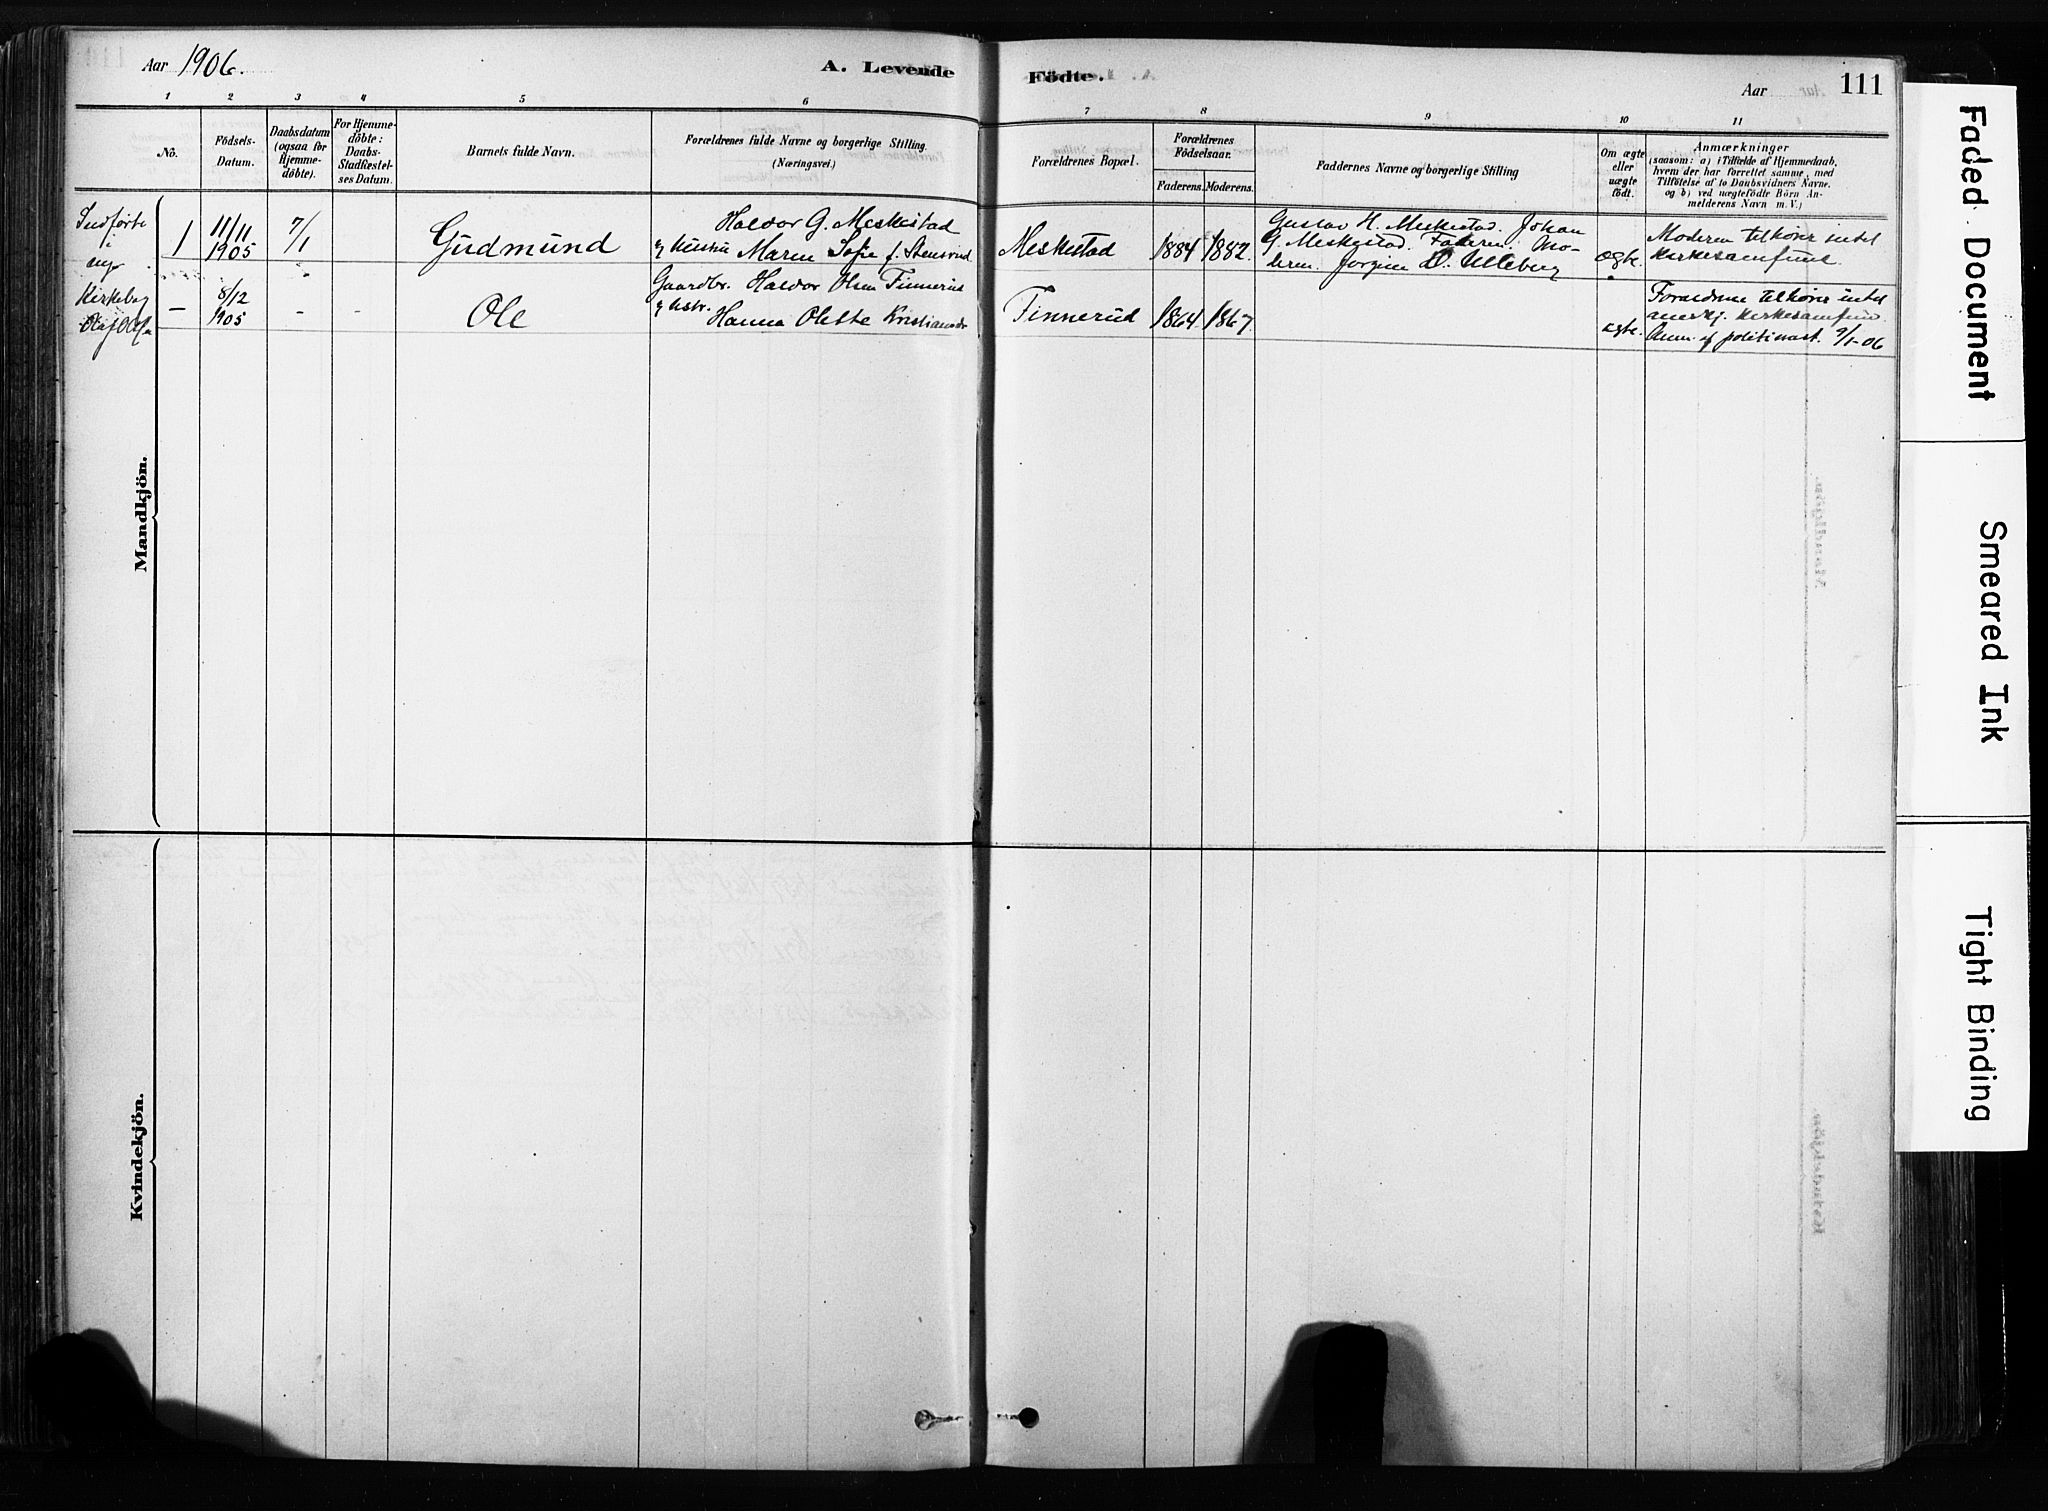 Aar 1906.
A. Levende
Födte.
Aar
111
1 2 3 4 5 6 7 8 9 10 11
No.
Födsels-
Datum.
Daabsdatum
(ogsaa for
Hjemme-
döbte).
For Hjemme-
döbte:
Daabs-
Stadfæstel-
ses Datum.
Barnets fulde Navn.
Forældrenes fulde Navne og borgerlige Stilling.
(Næringsvei.)
Forældrenes Bopæl.
Forældrenes
Födselsaar.
Faderens. Moderens.
Faddernes Navne og borgerlige Stilling
Om ægte
eller
uægte
födt.
Anmærkninger
(saasom: a) i Tilfælde af Hjemmedaab,
hvem der har forrettet samme, med
Tilföielse af to Daabsvidners Navne,
og b) ved uægtefödte Börn An-
melderens Navn m. V.)
Mandkjön.
Indførte
i
nye
Kirkebog
1
11/11
1905
7/1
Gudmund
Haldor G. Meskestad
og hustru Maren Sofie f. Stensrud
Meskestad
1884 1882.
Gustav H. Meskestad. Johan
G. Meskestad. Faderen. Mo-
deren. Jorgine D. Ulleberg
ægte.
Moderen tilhører intet
kirkesamfund.
—
8/12
1905
- -
Ole
Gaardbr. Haldor Olsen Finnerud
og hstr.
Hanna Olette Kristiansdr
Finnerud
1864 1867.
ægte.
Forældrene tilhører intet
anerkj. kirkesamfund.
Anm. af politimest. 9/1-06
Kvindekjön.
Faded Document
Smeared Ink
Tight Binding